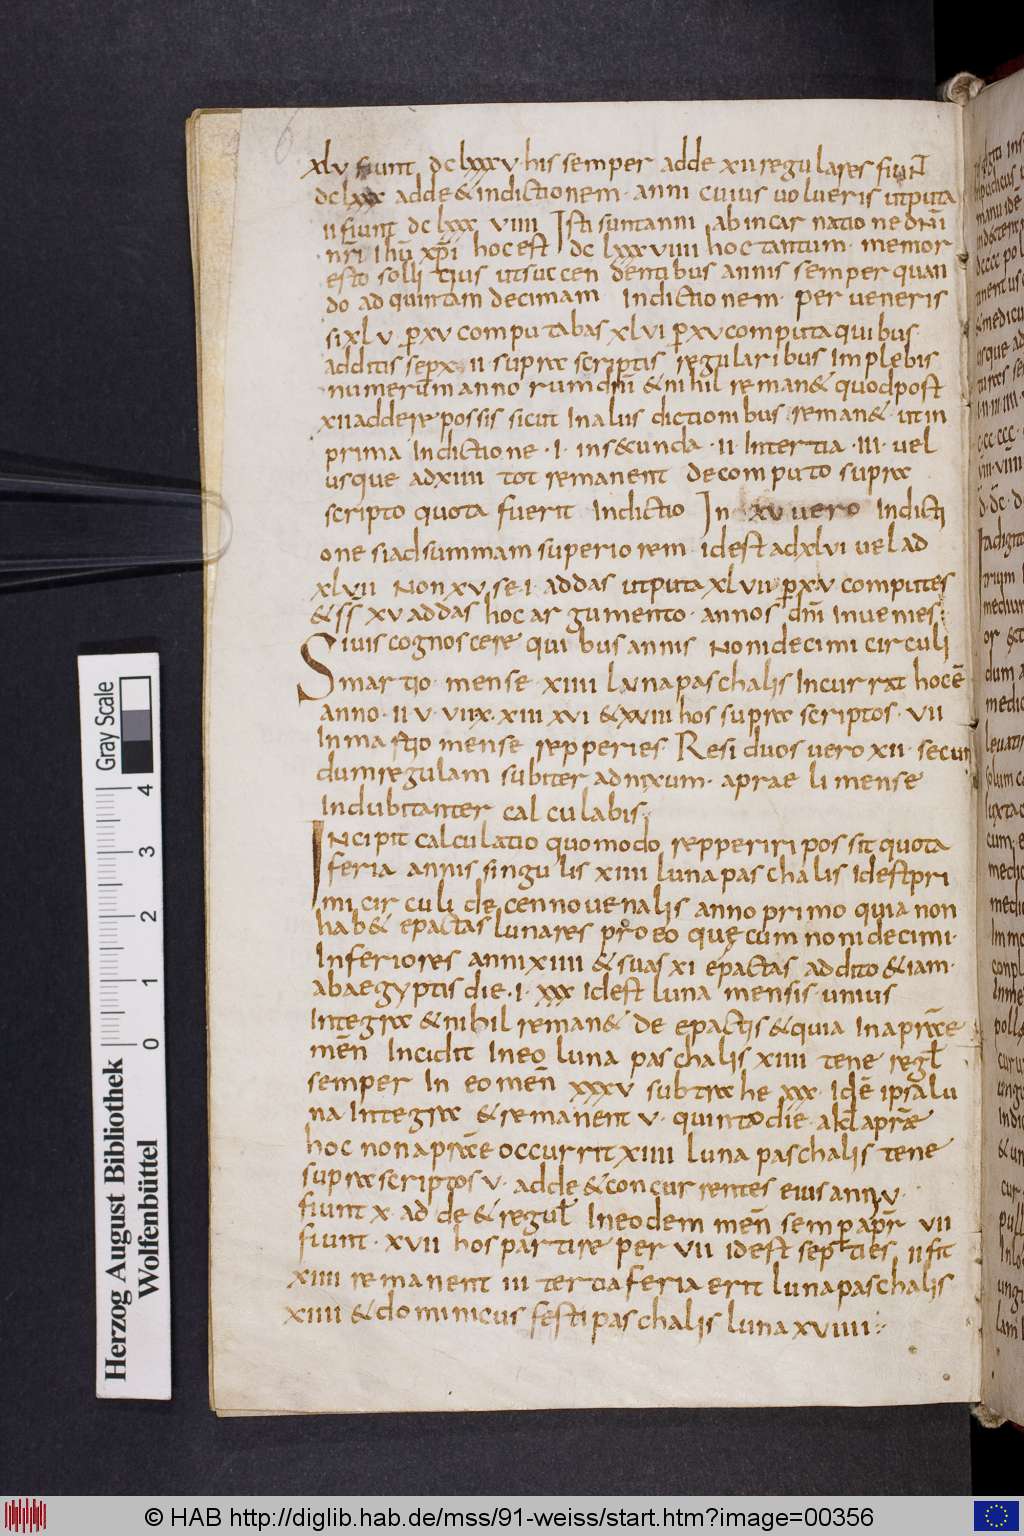 xlv fiunt dclxxxv his semper adde xii regulares fiunt
dclxxx adde & indictionem anni cuius uolueris utputa
ii fiunt dclxxx viiii Isti suntanni ab incar natio ne dñi
nr̄i ihū xp̄i hoc est dc lxxx viiii hoc tantum memor
esto solli tius ut succen dentibus annis semper quan
do ad quintam decimam indictionem per ueneris
si xlv p̱ xv computabas xlvi p̱ xv computa quibus
additis sepx ii supra scriptis regularibus implebis
numerum anno rum dn̄i & nihil reman& quod post
xii addere possis sicut In aliis dictionibus reman& ut in
prima Indictione · I · in s&cunda · II · Intertia · III · uel
usque ad xiiii tot remanent de computo supra
scripto quota fuerit Indictio In xv uero Indicti
one si adsummam superiorem · idest ad xlvi uel ad
xlvii Non xv se · i · addas utputa xlvii p̱ xv computes
& si xv addas hoc argumento · annos dn̄i Inuenies
Siuis cognoscere quibus annis Nonidecimi circuli
martio mense xiiii luna paschalis Incurrat hoc ē
anno · ii v · viix · xiii xvi & xviiii hos supra scriptos · vii
In martio mense repperies Residuos uero xii · secun
dum regulam subiter adnixum · aprae li mense
Indubitanter calculabis
INcipit calculatio quomodo repperiri possit quota
feria annis singulis xiiii luna paschalis Idest pri
mi circuli decennouenalis anno primo quia non
hab& epactas lunares pro eo quę cum nonidecimi ·
Inferiores anni xiiii & suas xi epactas addito & iam ·
ab aegyptis die · i · xxx idest luna mensis unius
Integra & nihil reman& de epactis & quia In aprǣ
mēn Incidit Ineo luna paschalis xiiii tene regł
semper In eo mēn xxxv subtrahe xxx · Idē ipsa lu
na Integra & remanent v · quinto die akł aprǣ
hoc non aprǣ occurrit xiiii luna paschalis tene
supra scriptos v · adde & concurrentes eius anni v ·
fiunt x · ad de & reguł Ineodem mēn semp apr̄ vii
fiunt · xvii hos partire per vii idest septies ii fit
xiiii remanent iii tertia feria erit luna paschalis
xiiii & dominicus festi paschalis luna xviiii
Gray Scale
0 1 2 3 4
Herzog August Bibliothek
Wolfenbüttel
© HAB http://diglib.hab.de/mss/91-weiss/start.htm?image=00356